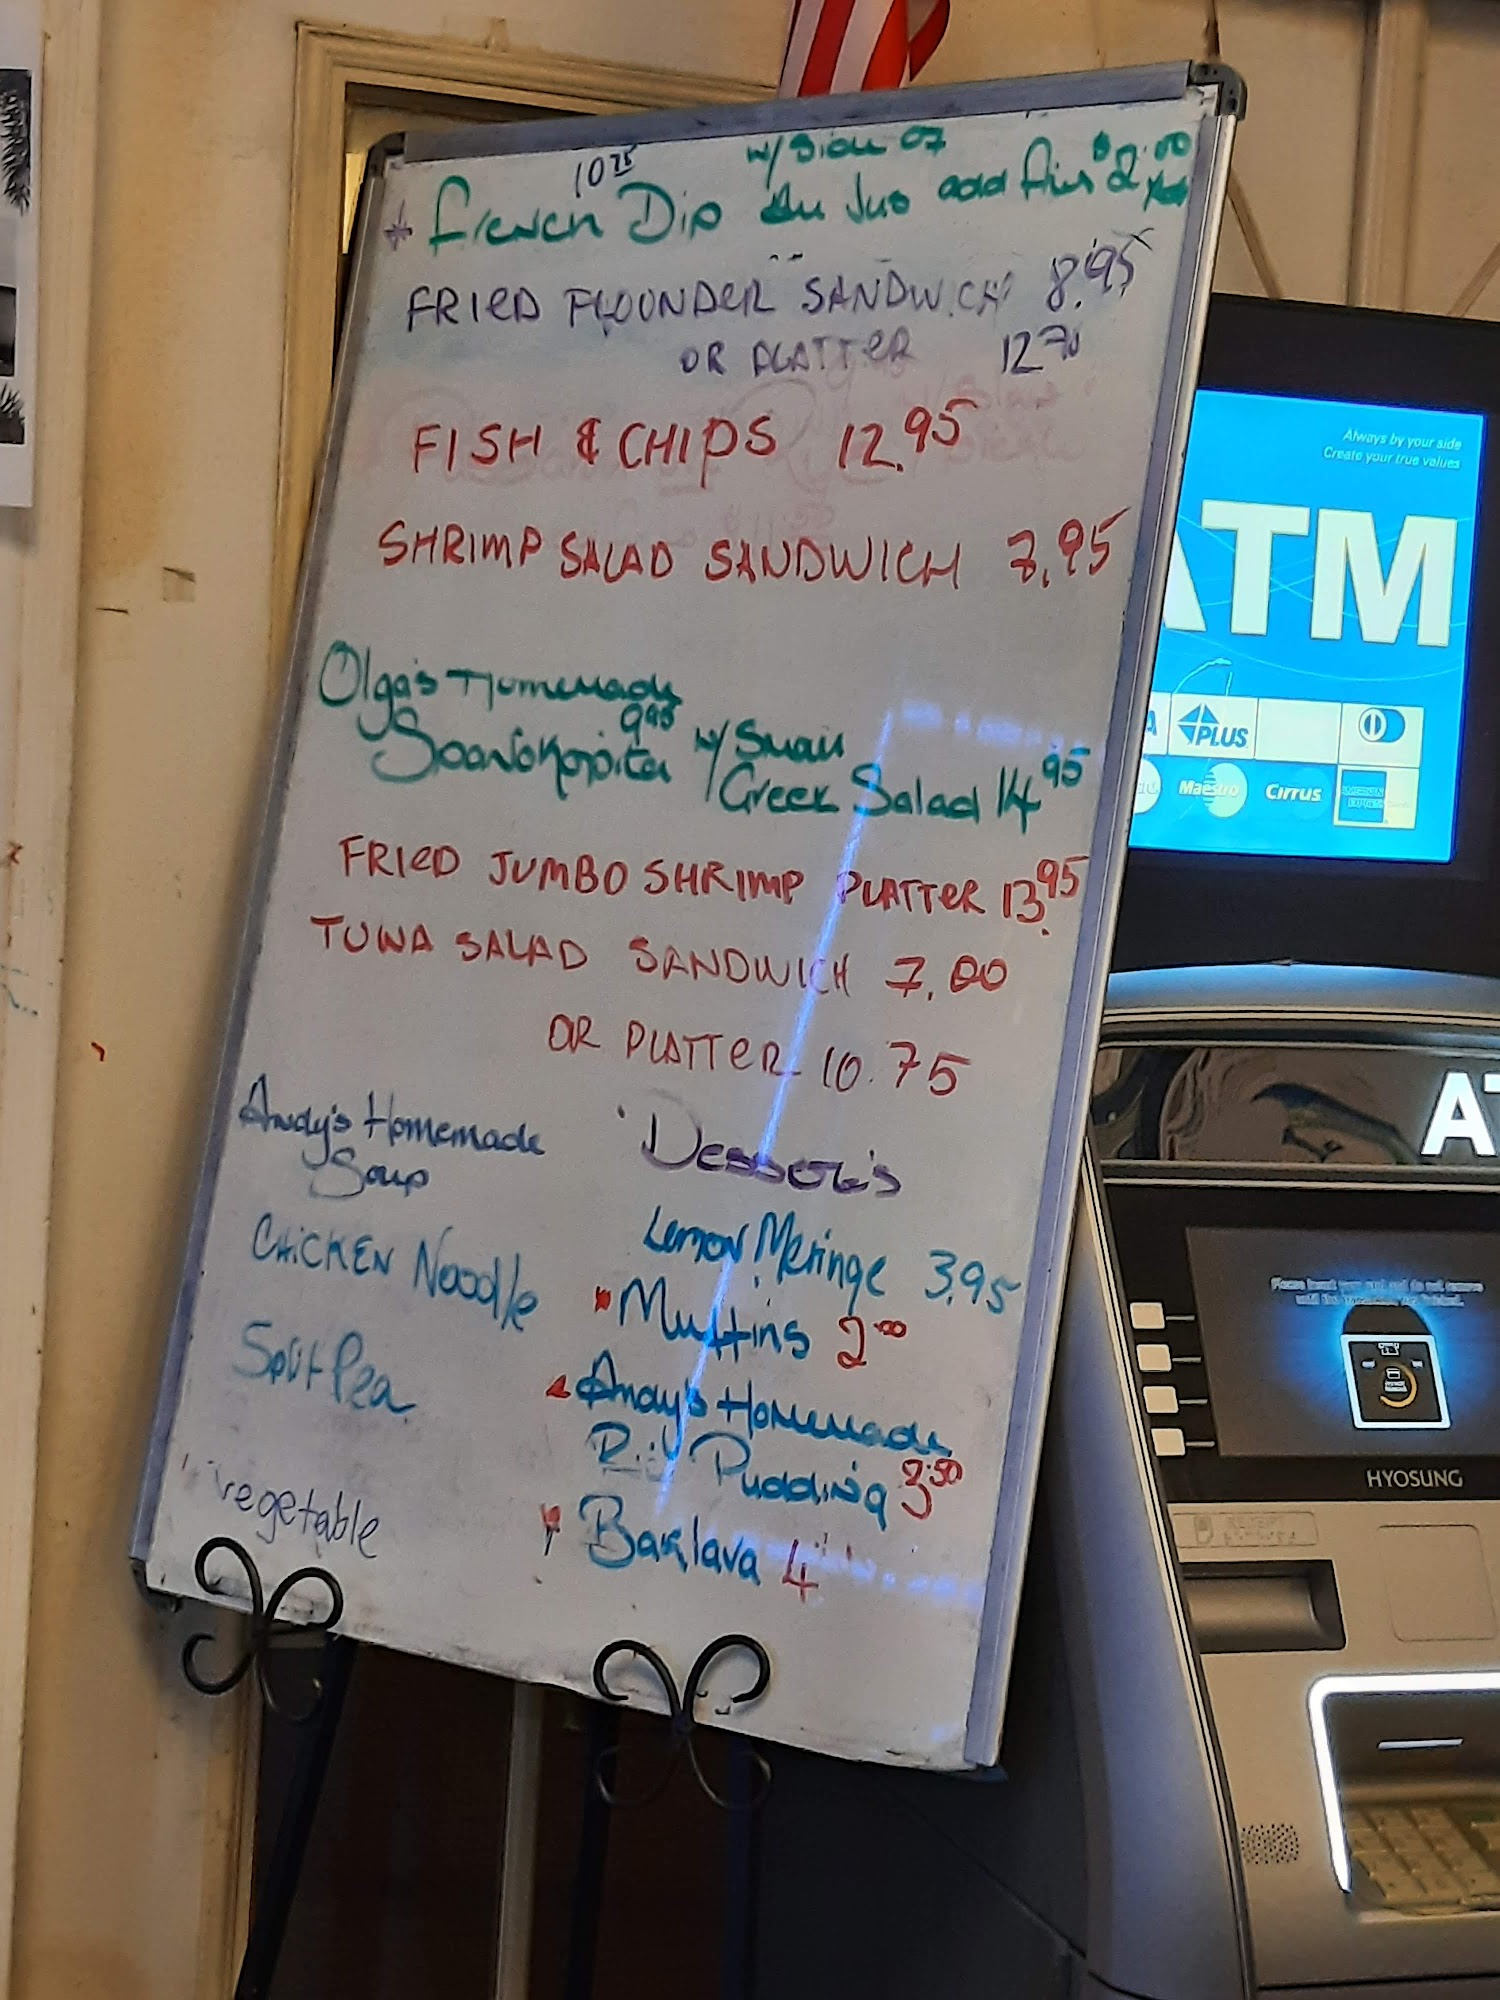 10 75
w/ Side of
French Dip Au Jus add fries $2.00
FRIED FLOUNDER SANDWICH 8.95
OR PLATTER 12 70
FISH & CHIPS 12.95
SHRIMP SALAD SANDWICH 7.95
Olga's Homemade
Spanokopita 9 95 w/ Small
Greek Salad 14 95
FRIED JUMBO SHRIMP PLATTER 13.95
TUNA SALAD SANDWICH 7.00
OR PLATTER 10.75
Andy's Homemade
Soup
CHICKEN Noodle
Split Pea
vegetable
Dessert's
Lemon Meringe 3.95
Muffins 2.00
Andy's Homemade
Pudding 3.50
Baklava 4
Always by your side
Create your true values
ATM
PLUS
Maestro
Cirrus
AT
HYOSUNG